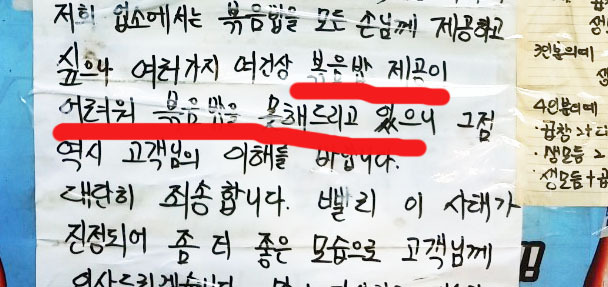 저희 업소에서는 볶음밥을 모든 손님께 제공하고
싶으나 여러가지 여건상 볶음밥 제공이
어려워 볶음밥을 못해드리고 있으니 그점
역시 고객님의 이해를 바랍니다.
대단히 죄송합니다. 빨리 이 사태가
진정되어 좀 더 좋은 모습으로 고객님께
인사드리겠습니다.
3인분의예
4인분의예
·곱창
·생모듬 2
·생모듬+곱